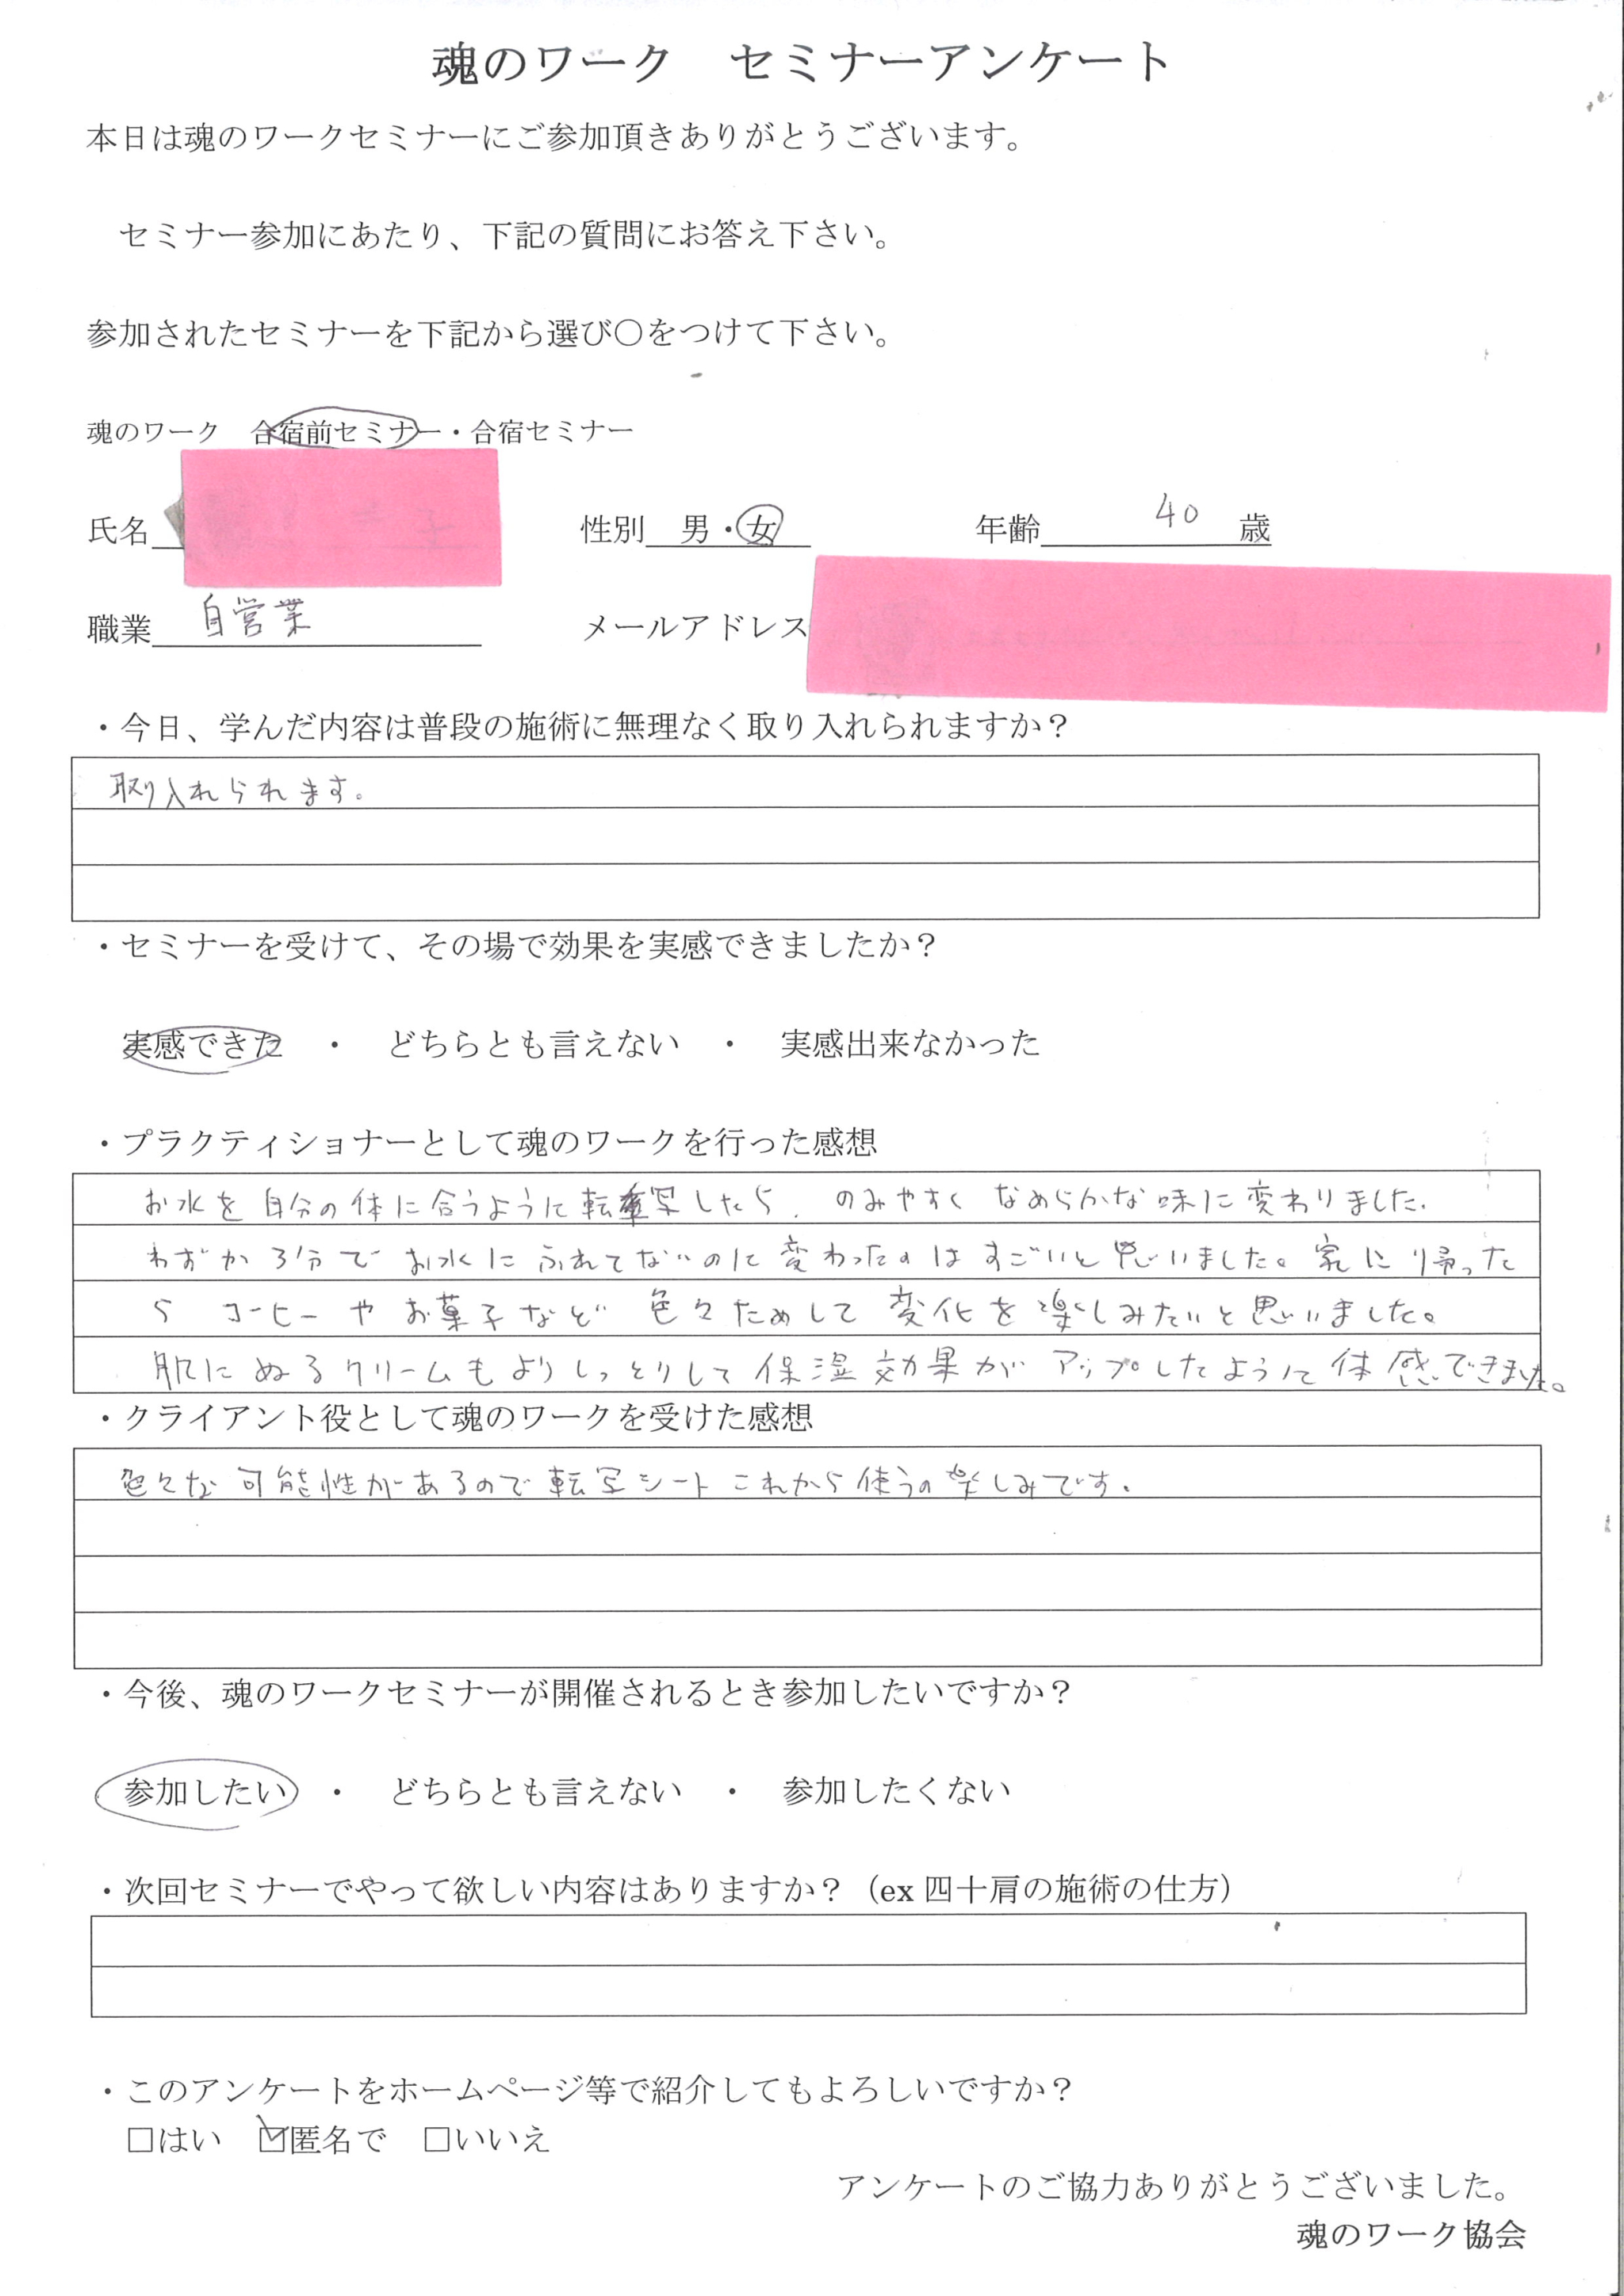 魂のワーク　セミナーアンケート
本日は魂のワークセミナーにご参加頂きありがとうございます。
セミナー参加にあたり、下記の質問にお答え下さい。
参加されたセミナーを下記から選び〇をつけて下さい。
魂のワーク　合宿前セミナー・合宿セミナー
氏名　性別　男・女　年齢　40　歳
職業　自営業　メールアドレス
・今日、学んだ内容は普段の施術に無理なく取り入れられますか？
取り入れられます。
・セミナーを受けて、その場で効果を実感できましたか？
実感できた　・　どちらとも言えない　・　実感出来なかった
・プラクティショナーとして魂のワークを行った感想
お水を自分の体に合うように転写したら、のみやすく なめらかな味に変わりました.
わずか3分で お水に ふれてないのに変わったのは すごいと思いました。家に帰った
ら コーヒーや お菓子など 色々ためして 変化を楽しみたいと思いました。
肌にぬるクリームもよりしっとりして保湿効果が アップしたように体感できました。
・クライアント役として魂のワークを受けた感想
色々な可能性があるので転写シートこれから使うの楽しみです.
・今後、魂のワークセミナーが開催されるとき参加したいですか？
参加したい　・　どちらとも言えない　・　参加したくない
・次回セミナーでやって欲しい内容はありますか？（ex 四十肩の施術の仕方）
・このアンケートをホームページ等で紹介してもよろしいですか？
□はい　☑匿名で　□いいえ
アンケートのご協力ありがとうございました。
魂のワーク協会